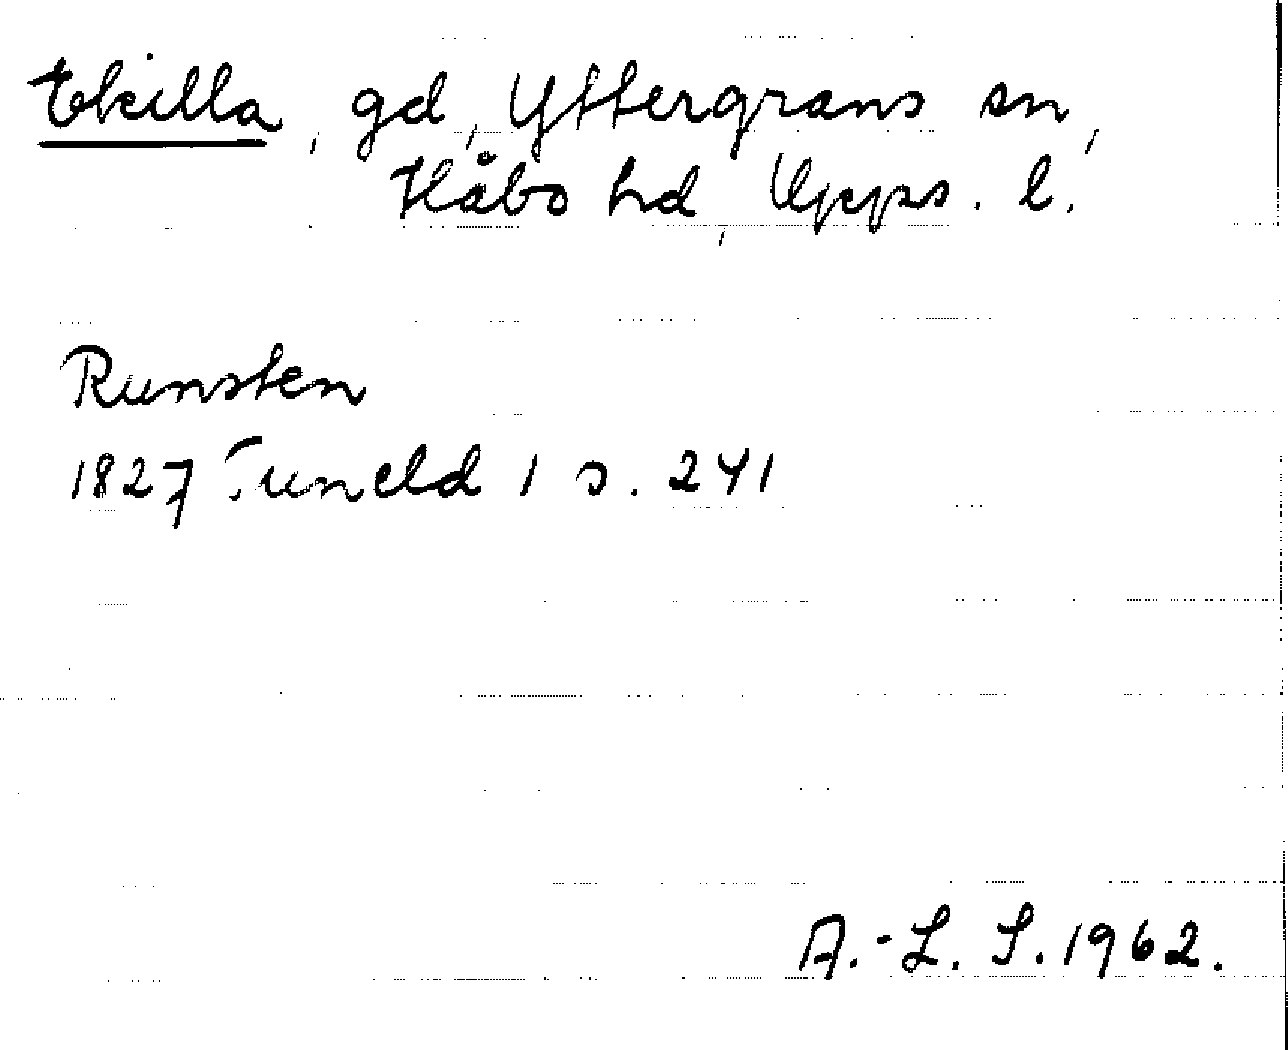 Ekilla, gd, Yttergrans sn,
Håbo hd, Upps. l.
Runsten
1827 Tuneld 1 s. 241
A.-L. S. 1962.